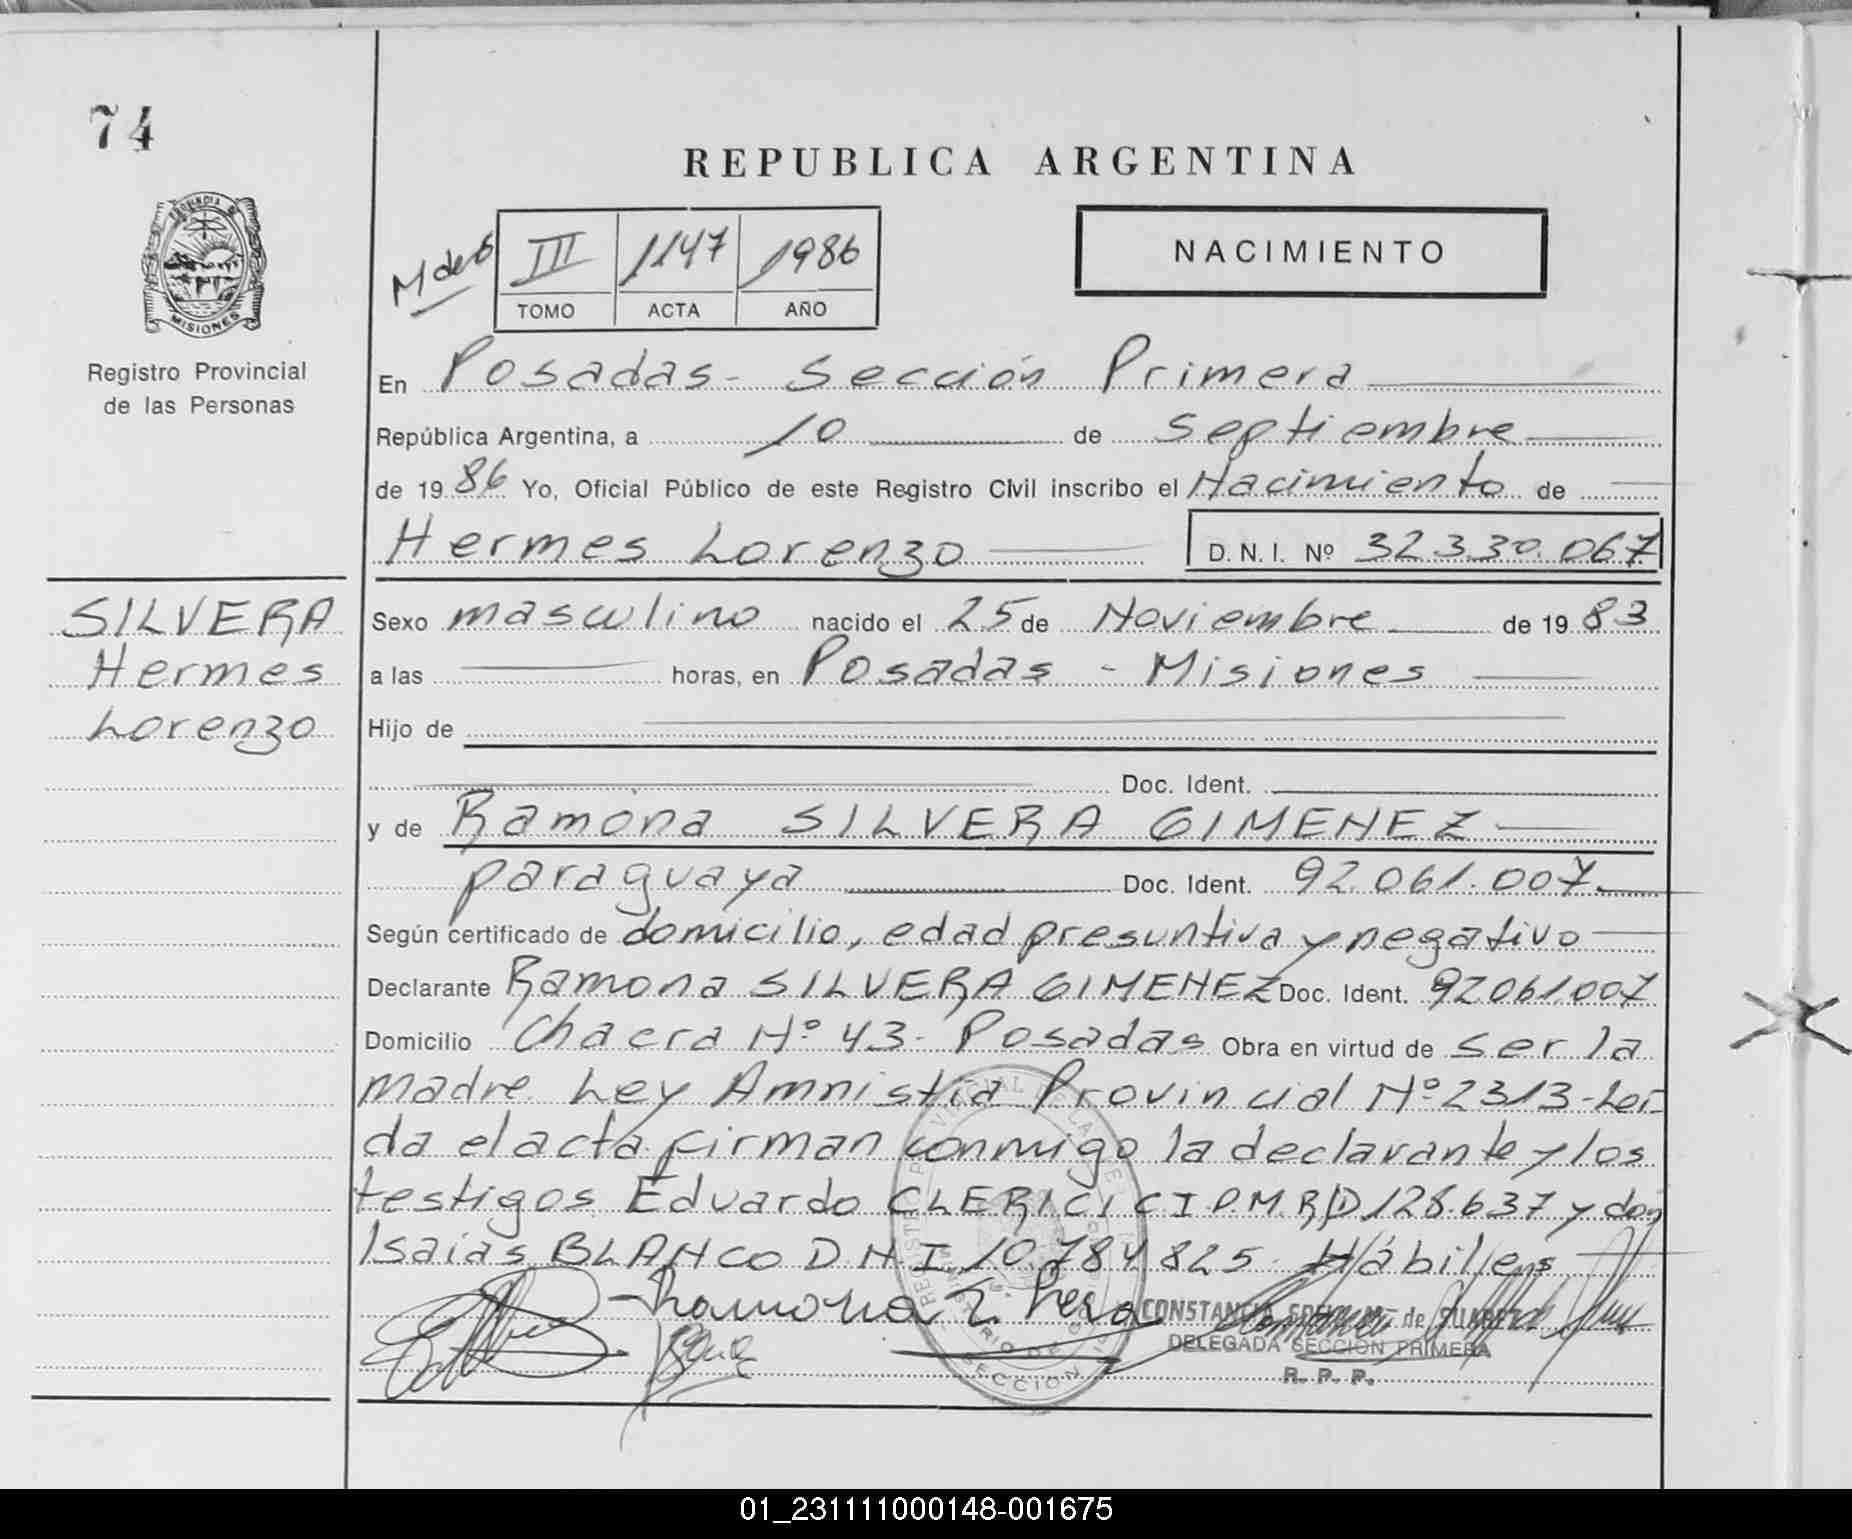 74
REPUBLICA ARGENTINA
PROVINCIA DE
MISIONES
Registro Provincial
de las Personas
M de 6
III 1147 1986
TOMO ACTA AÑO
NACIMIENTO
En Posadas - Sección Primera
República Argentina, a 10 de Septiembre
de 1986 Yo, Oficial Público de este Registro Civil inscribo el Nacimiento de
Hermes Lorenzo D. N. I. Nº 32.330.067
SILVERA
Hermes
Lorenzo
Sexo masculino nacido el 25 de Noviembre de 1983
a las horas, en Posadas - Misiones
Hijo de
Doc. Ident.
y de Ramona SILVERA GIMENEZ
paraguaya Doc. Ident. 92.061.007.
Según certificado de domicilio, edad presuntiva y negativo
Declarante Ramona SILVERA GIMENEZ Doc. Ident. 92.061.007
Domicilio Chacra Nº 43 - Posadas Obra en virtud de ser la
madre. Ley Amnistia Provincial Nº 2313 - Lei-
da el acta firman conmigo la declarante y los
testigos Eduardo CLERICI C I.P.M. R/D 128.637 y don
Isaias BLANCO D.N.I. 10.784.825 - Hábiles
CONSTANCIA de
DELEGADA SECCION PRIMERA
R. P. P.
01_231111000148-001675